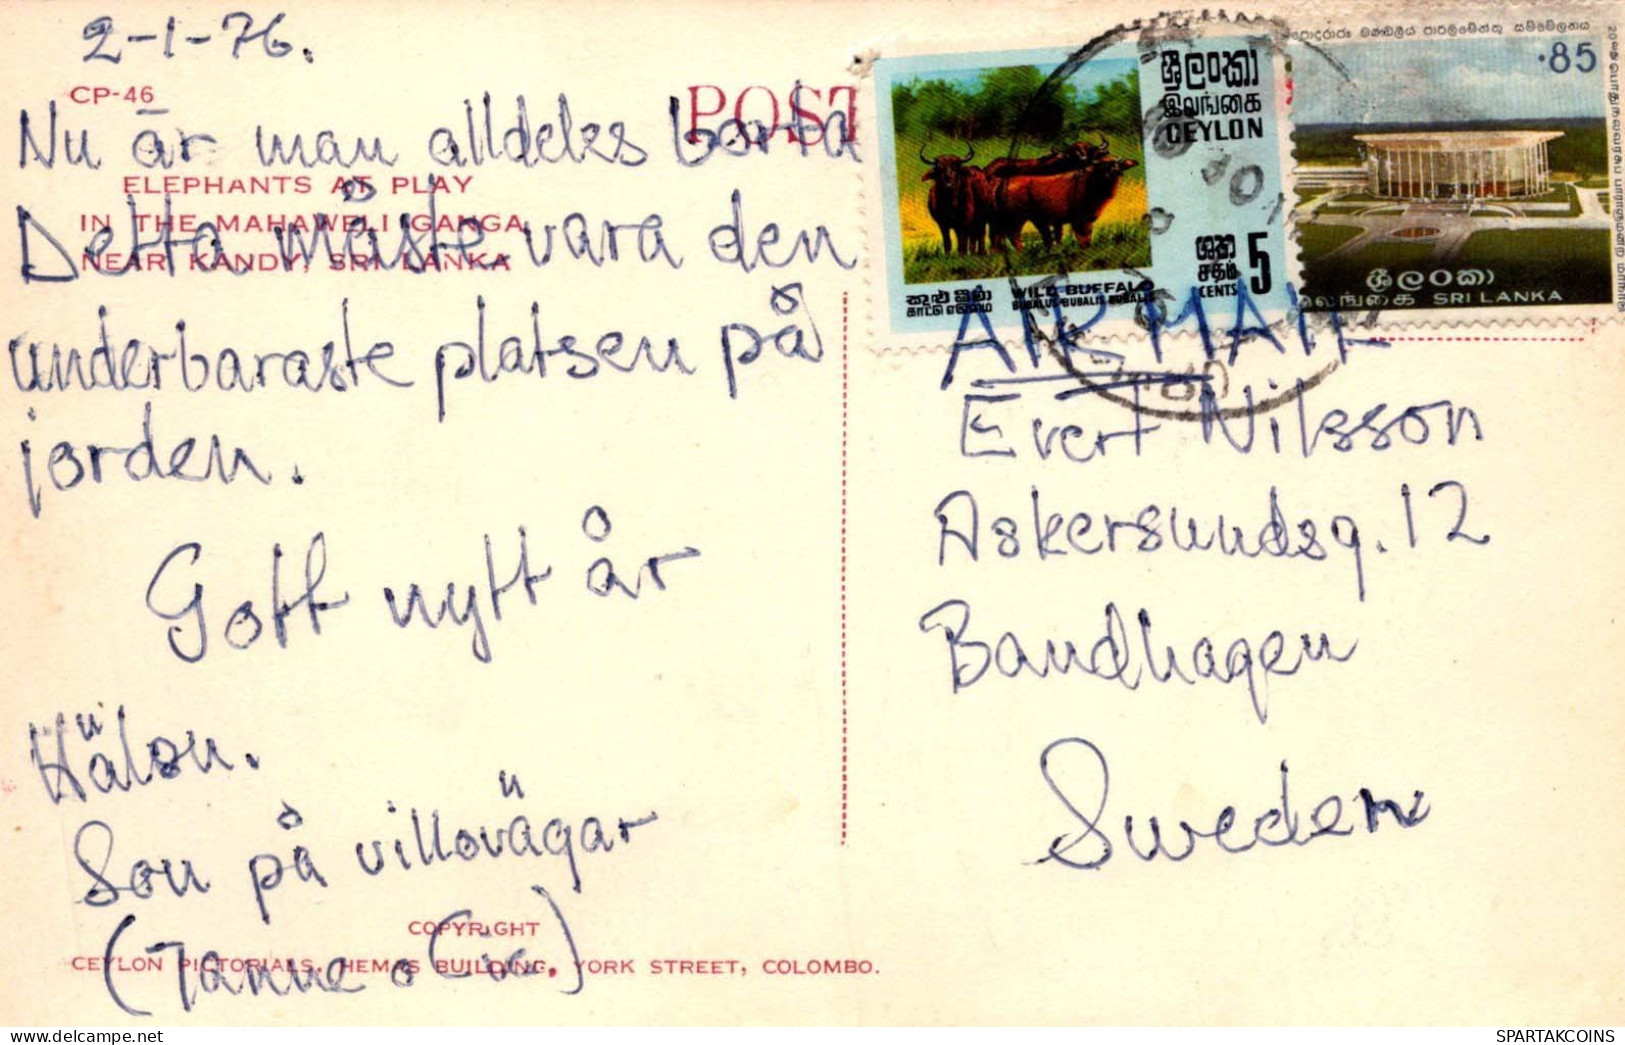 2-1-76.
CP-46
POST
Nu är man alldeles borta
ELEPHANTS AT PLAY
IN THE MAHAWELI GANGA
NEAR KANDY, SRI LANKA
Detta måste vara den
underbaraste platsen på
jorden.
Gott nytt år
Hälsn.
Son på villovägar
(Janne o Cic)
COPYRIGHT
CEYLON PICTORIALS, HEMAS BUILDING, YORK STREET, COLOMBO.
ශ්‍රී ලංකා
இலங்கை
CEYLON
ශත
சதம் 5
CENTS
WILD BUFFALO
BUBALUS BUBALIS BUBALIS
.85
ශ්‍රී ලංකා
இலங்கை SRI LANKA
AIR MAIL
Evert Nilsson
Askersundsg. 12
Bandhagen
Sweden
www.delcampe.net
SPARTAKCOINS